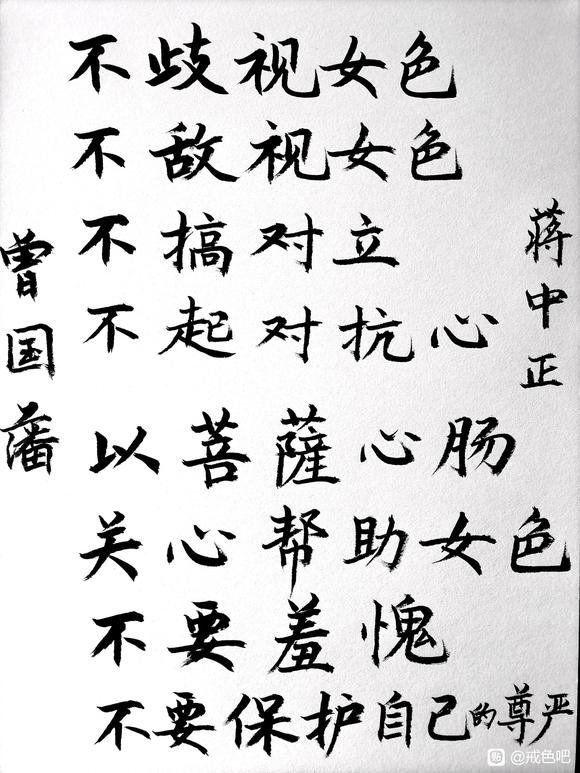 不歧视女色
不敌视女色
不搞对立
不起对抗心
以菩薩心肠
关心帮助女色
不要羞愧
不要保护自己的尊严
曾国藩
蒋中正
贴 @戒色吧